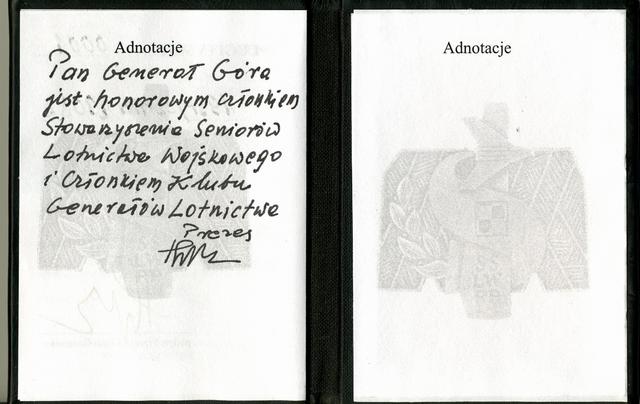 Adnotacje
Pan Generał Góra
jest honorowym członkiem
Stowarzyszenia Seniorów
Lotnictwa Wojskowego
i Członkiem Klubu
Generałów Lotnictwa
Prezes
Adnotacje